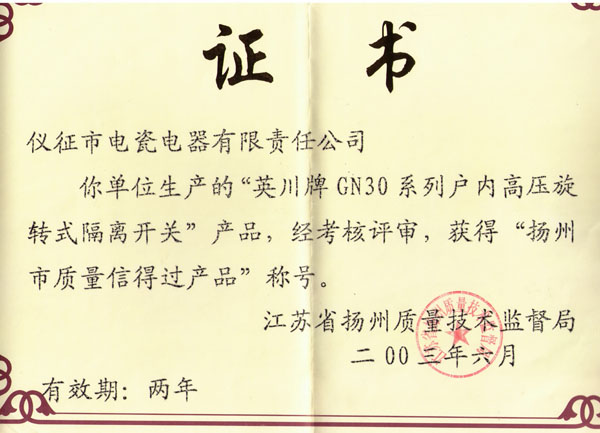 证 书
仪征市电瓷电器有限责任公司
你单位生产的“英川牌GN30系列户内高压旋
转式隔离开关”产品，经考核评审，获得“扬州
市质量信得过产品”称号。
江苏省扬州质量技术监督局
二00三年六月
有效期：两年